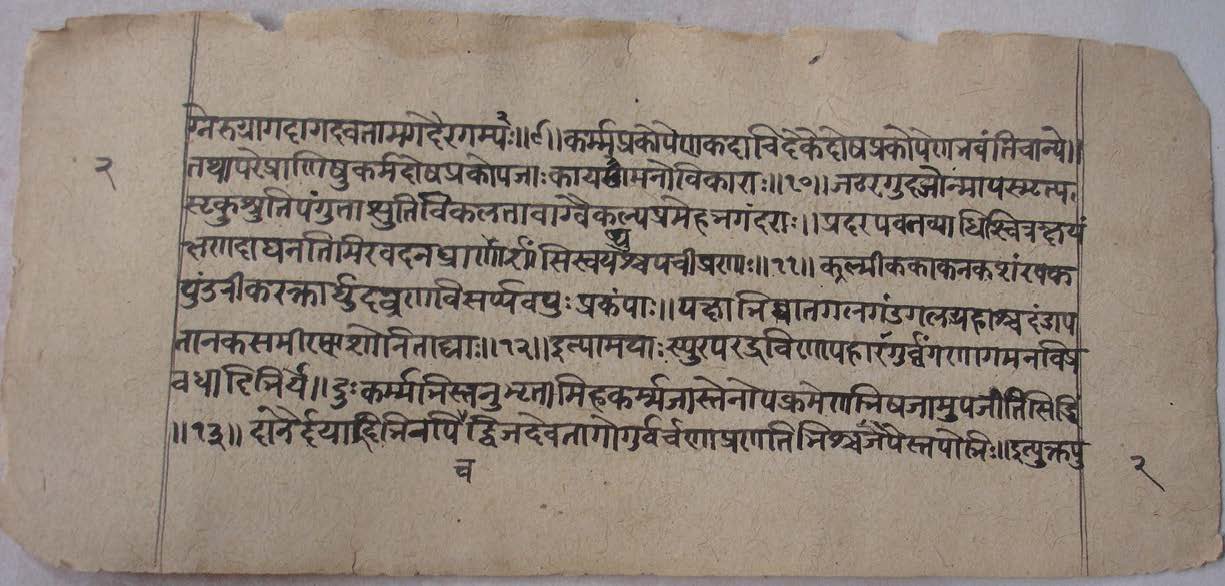 ग्नेरुयागदागदवतामगदैरगम्यैः॥९॥कर्म्मप्रकोपेणकदाचिदेकेदोषप्रकोपेणभवंतिचान्ये॥
२
तथापरेप्राणिषुकर्मदोषप्रकोपजाःकायमनोविकाराः॥१०॥जठरगुदजोन्मापस्मृत्य
पंगुताश्रुतिविकलतावाग्वैकल्यप्रमेहभगंदराः॥प्रदरपवनव्याधिश्वित्र
तिमिरवदनघ्राणार्शांसिस्वयश्चपची॥११॥
पुंडरीकरक्तार्वुदव्रणविसर्प्पवपुःप्रकंपाः॥पक्षाभिघातगलगंडगलग्रहाश्चदंडाप
तानकसमीरणशोनिताद्याः॥१२॥इत्यामयाःस्युरपरद्रविणापहारगुर्व्वंगणागमनविप्र
वधादिभिर्ये॥दुःकर्म्मभिस्तनुभृतामिहकर्म्मजास्तेनोपक्रमेणभिषजामुपजांतिसिद्धिं
॥१३॥दानैर्दयादिभिरपिद्विजदेवतागोगुर्वर्चणाप्रणतिभिश्चजपैस्तपोभिः॥इत्युक्तपु
च
२